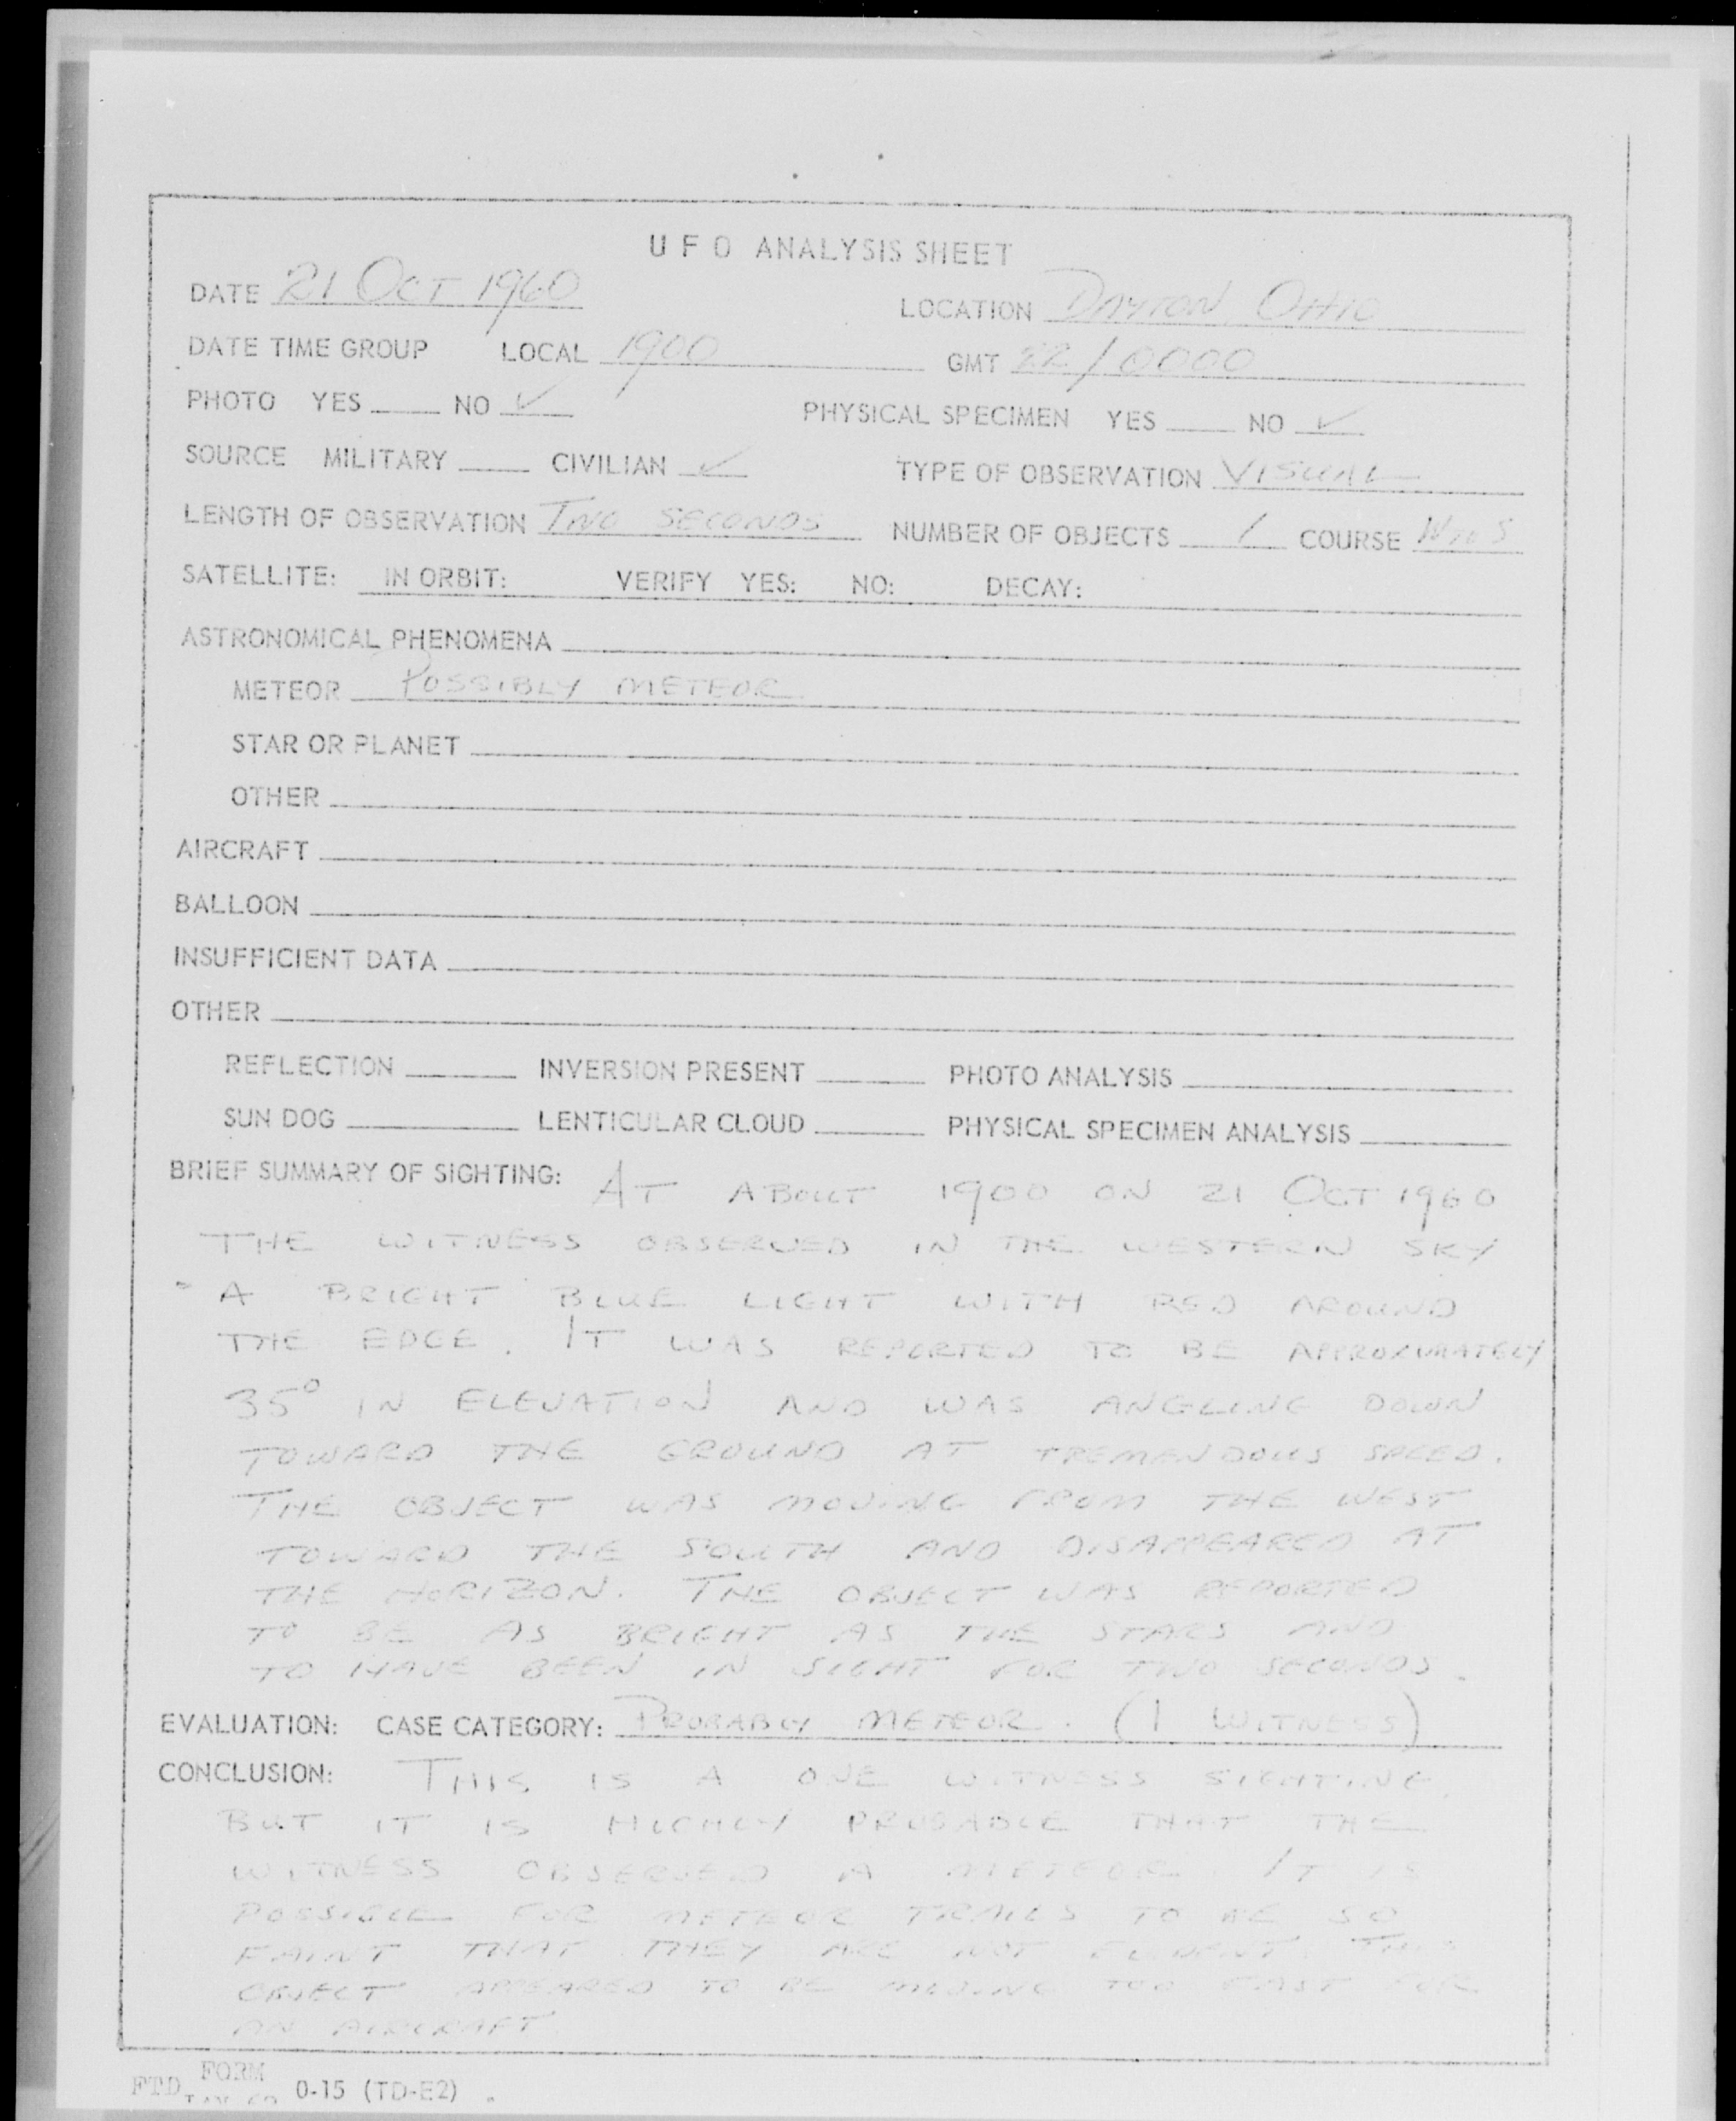 UFO ANALYSIS SHEET
DATE 21 OCT 1960 LOCATION DAYTON, OHIO
DATE TIME GROUP LOCAL 1900 GMT 22/0000
PHOTO YES ____ NO ✓ PHYSICAL SPECIMEN YES ____ NO ✓
SOURCE MILITARY ____ CIVILIAN ✓ TYPE OF OBSERVATION VISUAL
LENGTH OF OBSERVATION TWO SECONDS NUMBER OF OBJECTS 1 COURSE W TO S
SATELLITE: IN ORBIT: VERIFY YES: NO: DECAY:
ASTRONOMICAL PHENOMENA
METEOR POSSIBLY METEOR
STAR OR PLANET
OTHER
AIRCRAFT
BALLOON
INSUFFICIENT DATA
OTHER
REFLECTION ____ INVERSION PRESENT ____ PHOTO ANALYSIS ____
SUN DOG ____ LENTICULAR CLOUD ____ PHYSICAL SPECIMEN ANALYSIS ____
BRIEF SUMMARY OF SIGHTING: AT ABOUT 1900 ON 21 OCT 1960
THE WITNESS OBSERVED IN THE WESTERN SKY
" A BRIGHT BLUE LIGHT WITH RED AROUND
THE EDGE. IT WAS REPORTED TO BE APPROXIMATELY
35° IN ELEVATION AND WAS ANGLING DOWN
TOWARD THE GROUND AT TREMENDOUS SPEED.
THE OBJECT WAS MOVING FROM THE WEST
TOWARD THE SOUTH AND DISAPPEARED AT
THE HORIZON. THE OBJECT WAS REPORTED
TO BE AS BRIGHT AS THE STARS AND
TO HAVE BEEN IN SIGHT FOR TWO SECONDS.
EVALUATION: CASE CATEGORY: PROBABLY METEOR. (1 WITNESS)
CONCLUSION: THIS IS A ONE WITNESS SIGHTING,
BUT IT IS HIGHLY PROBABLE THAT THE
WITNESS OBSERVED A METEOR. IT IS
POSSIBLE FOR METEOR TRAILS TO BE SO
FAINT THAT THEY ARE NOT EVIDENT. THIS
OBJECT APPEARED TO BE MOVING TOO FAST FOR
AN AIRCRAFT
FTD FORM 0-15 (TD-E2)